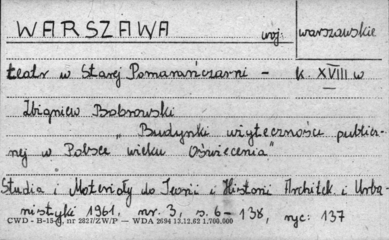 WARSZAWA woj: warszawskie
teatr w Starej Pomarańczarni - k. XVIII w
Zbigniew Bobrowski
"Budynki użyteczności publicz-
nej w Polsce wieku Oświecenia"
Studia i Materiały do Teorii i Historii Architek. i Urba-
nistyki 1961, nr. 3, s. 6-138, ryc: 137
CWD - B-15 nr 2827/ZW/P — WDA 2694 13.12.62 1.700.000